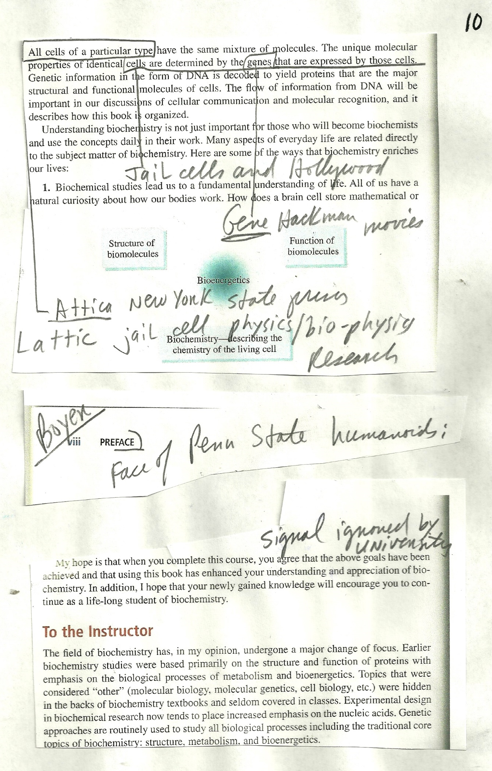 10
All cells of a particular type have the same mixture of molecules. The unique molecular
properties of identical cells are determined by the genes that are expressed by those cells.
Genetic information in the form of DNA is decoded to yield proteins that are the major
structural and functional molecules of cells. The flow of information from DNA will be
important in our discussions of cellular communication and molecular recognition, and it
describes how this book is organized.
Understanding biochemistry is not just important for those who will become biochemists
and use the concepts daily in their work. Many aspects of everyday life are related directly
to the subject matter of biochemistry. Here are some of the ways that biochemistry enriches
our lives:
Jail cells and Hollywood
1. Biochemical studies lead us to a fundamental understanding of life. All of us have a
natural curiosity about how our bodies work. How does a brain cell store mathematical or
Gene Hackman movies
Structure of
biomolecules
Function of
biomolecules
Bioenergetics
Attica New York state
Lattic jail cell physics/bio-physics
Research
Biochemistry—describing the
chemistry of the living cell
Boyer
viii PREFACE
Face of Penn State humanoids:
Signal ignored by
University
My hope is that when you complete this course, you agree that the above goals have been
achieved and that using this book has enhanced your understanding and appreciation of bio-
chemistry. In addition, I hope that your newly gained knowledge will encourage you to con-
tinue as a life-long student of biochemistry.
To the Instructor
The field of biochemistry has, in my opinion, undergone a major change of focus. Earlier
biochemistry studies were based primarily on the structure and function of proteins with
emphasis on the biological processes of metabolism and bioenergetics. Topics that were
considered "other" (molecular biology, molecular genetics, cell biology, etc.) were hidden
in the backs of biochemistry textbooks and seldom covered in classes. Experimental design
in biochemical research now tends to place increased emphasis on the nucleic acids. Genetic
approaches are routinely used to study all biological processes including the traditional core
topics of biochemistry: structure, metabolism, and bioenergetics.